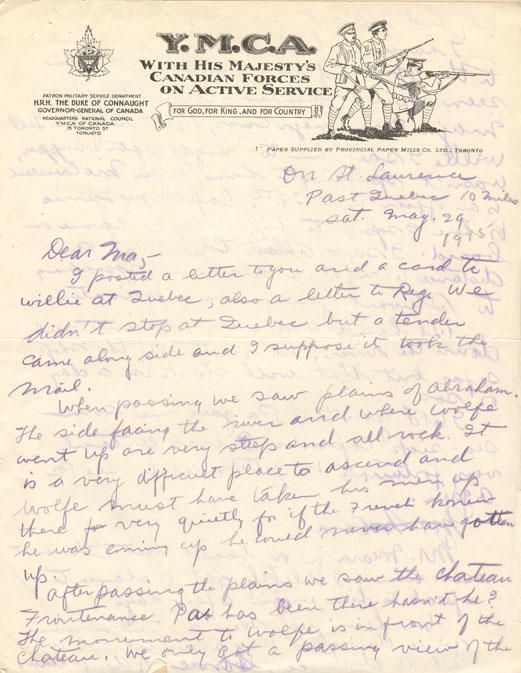 Y.M.C.A.
WITH HIS MAJESTY'S
CANADIAN FORCES
ON ACTIVE SERVICE
FOR GOD, FOR KING, AND FOR COUNTRY
PATRON MILITARY SERVICE DEPARTMENT
H.R.H. THE DUKE OF CONNAUGHT
GOVERNOR-GENERAL OF CANADA
HEADQUARTERS NATIONAL COUNCIL
Y.M.C.A. OF CANADA
15 TORONTO ST
TORONTO
PAPER SUPPLIED BY PROVINCIAL PAPER MILLS CO. LTD., TORONTO
On St. Laurence
Past Quebec 10 miles
Sat. May. 29.
1915
Dear Ma,-
I posted a letter to you and a card to
willie at Quebec, also a letter to Reg. We
didn't stop at Quebec but a tender
came along side and I suppose it took the
mail.
When passing we saw plains of abraham.
The side facing the river and where Wolfe
went up are very steep and all rock. It
is a very difficult place to ascend and
Wolfe must have taken his men up
there very quietly for if the French knew
he was coming up he could never have gotten
up.
After passing the plains we saw the chateau
Frontenance. Pa has been there hasn't he?
The monument to Wolfe is in front of the
chateau. We only got a passing view of the